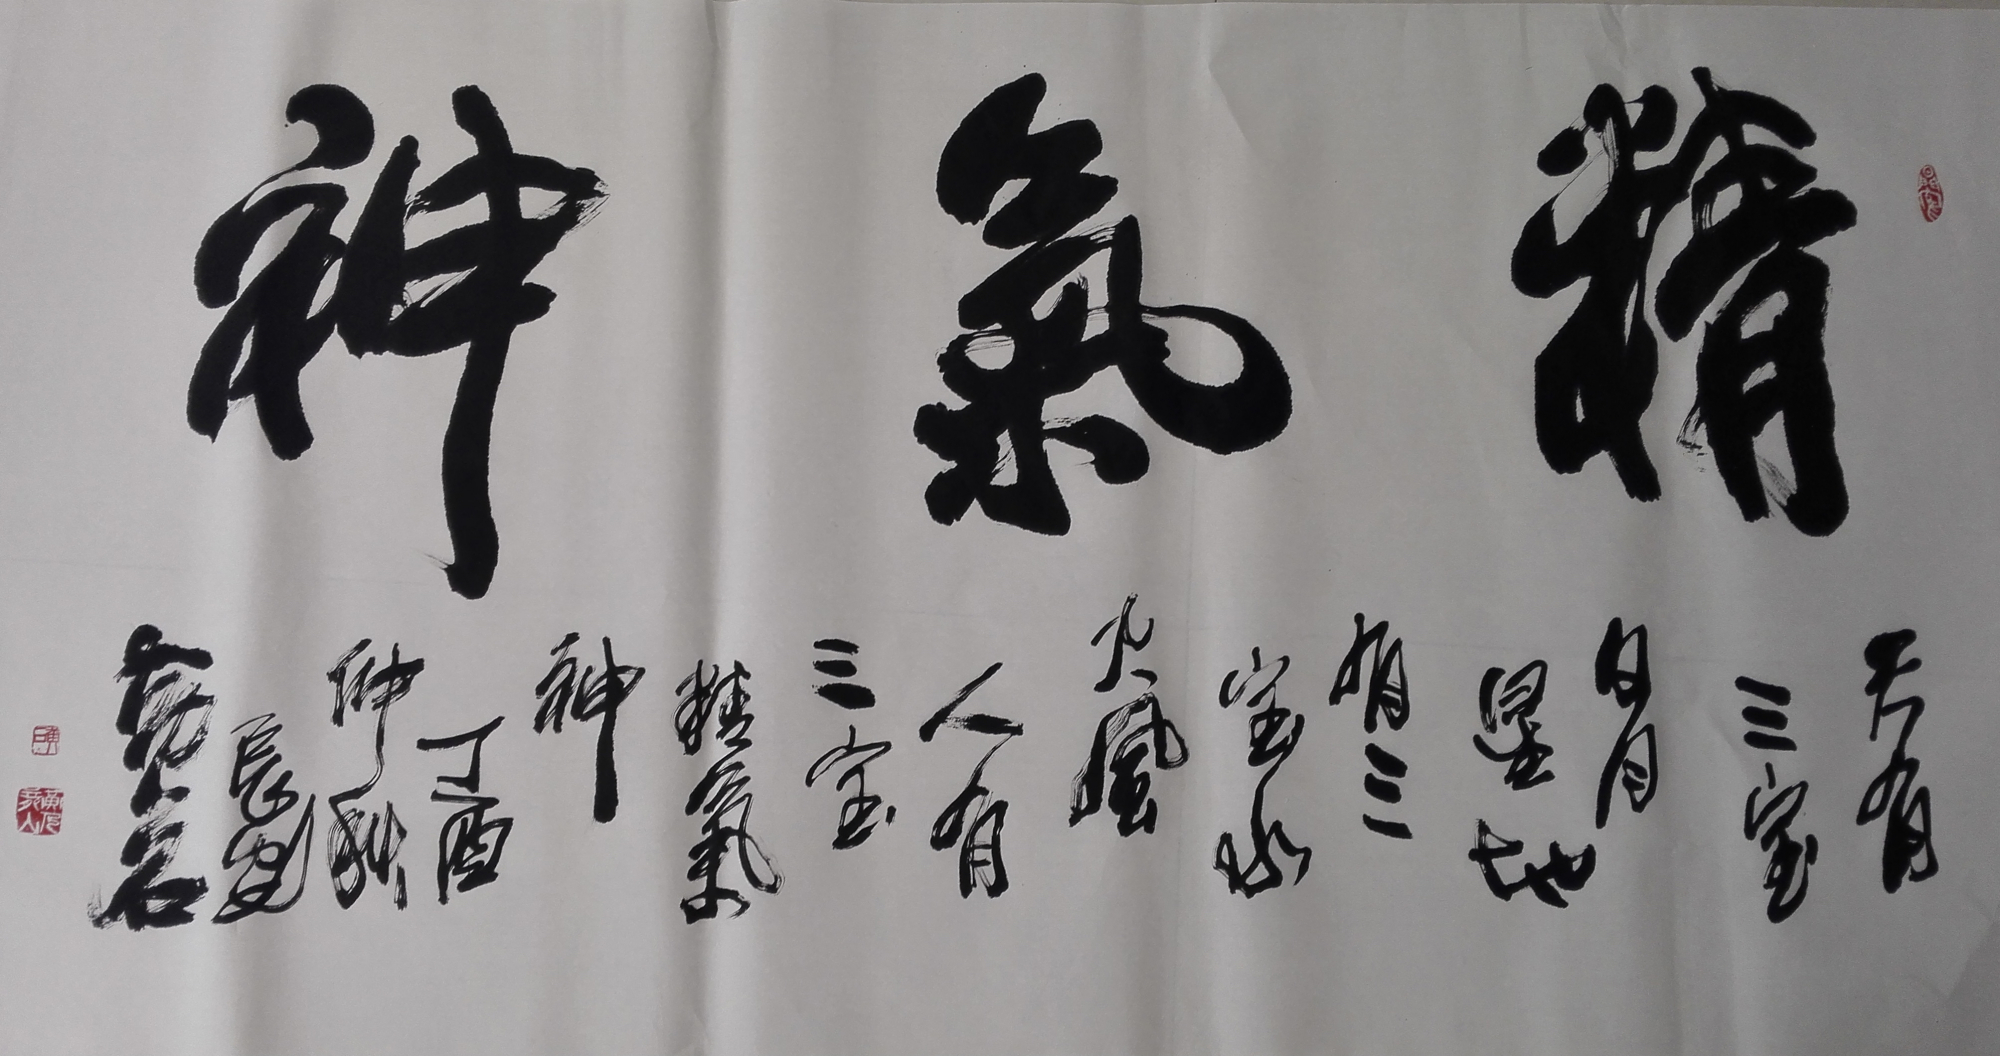 精氣神
天有
三宝
日月
星地
有三
宝水
火風
人有
三宝
精氣
神
丁酉
仲秋